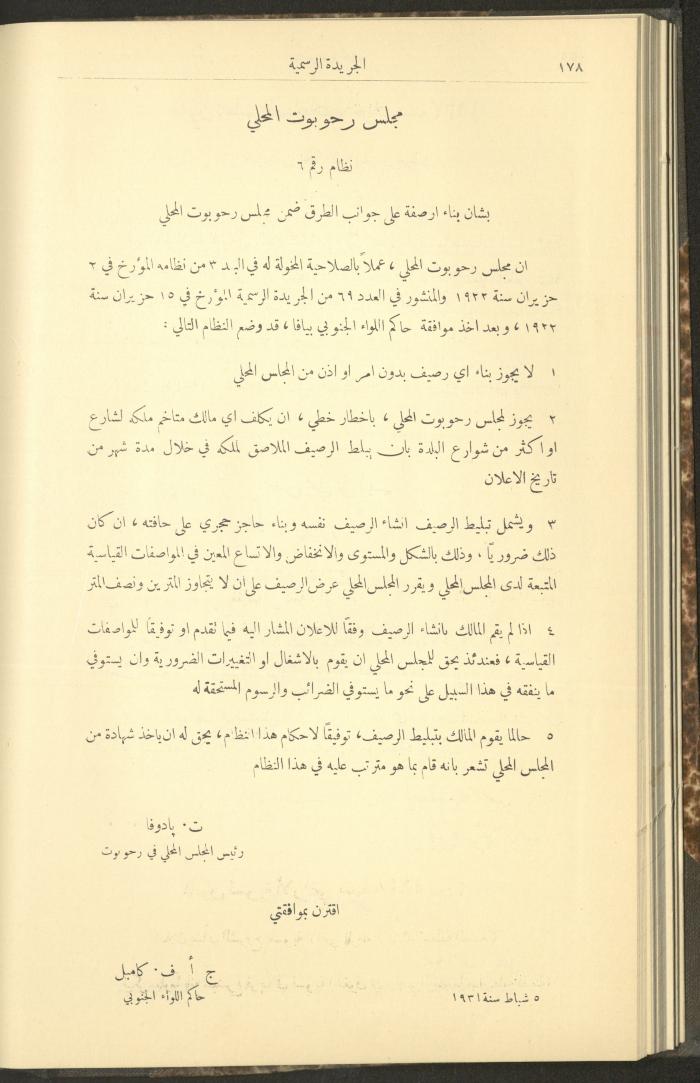 ١٧٨
الجريدة الرسمية
مجلس رحوبوت المحلي
نظام رقم ٦
بشان بناء ارصفة على جوانب الطرق ضمن مجلس رحوبوت المحلي
ان مجلس رحوبوت المحلي ، عملاً بالصلاحية المخولة له في البند ٣ من نظامه المؤرخ في ٢
حزيران سنة ١٩٢٢ والمنشور في العدد ٦٩ من الجريدة الرسمية المؤرخ في ١٥ حزيران سنة
١٩٢٢ ، وبعد اخذ موافقة حاكم اللواء الجنوبي بيافا ، قد وضع النظام التالي :
١ لا يجوز بناء اي رصيف بدون امر او اذن من المجلس المحلي
٢ يجوز لمجلس رحوبوت المحلي ، باخطار خطي ، ان يكلف اي مالك متاخم ملكه لشارع
او اكثر من شوارع البلدة بان يبلط الرصيف الملاصق لملكه في خلال مدة شهر من
تاريخ الاعلان
٣ ويشمل تبليط الرصيف انشاء الرصيف نفسه وبناء حاجز حجري على حافته ، ان كان
ذلك ضروريًّا . وذلك بالشكل والمستوى والانخفاض والاتساع المعين في المواصفات القياسية
المتبعة لدى المجلس المحلي ويقرر المجلس المحلي عرض الرصيف على ان لا يتجاوز المترين ونصف المتر
٤ اذا لم يقم المالك بانشاء الرصيف وفقًا للاعلان المشار اليه فيما تقدم او توفيقًا للمواصفات
القياسية ، فعندئذ يحق للمجلس المحلي ان يقوم بالاشغال او التغييرات الضرورية وان يستوفي
ما ينفقه في هذا السبيل على نحو ما يستوفي الضرائب والرسوم المستحقة له
٥ حالما يقوم المالك بتبليط الرصيف، توفيقًا لاحكام هذا النظام ، يحق له ان ياخذ شهادة من
المجلس المحلي تشعر بانه قام بما هو مترتب عليه في هذا النظام
ت . پادوفا
رئيس المجلس المحلي في رحوبوت
اقترن بموافقتي
ج أ . ف . كامبل
٥ شباط سنة ١٩٣١
حاكم اللواء الجنوبي